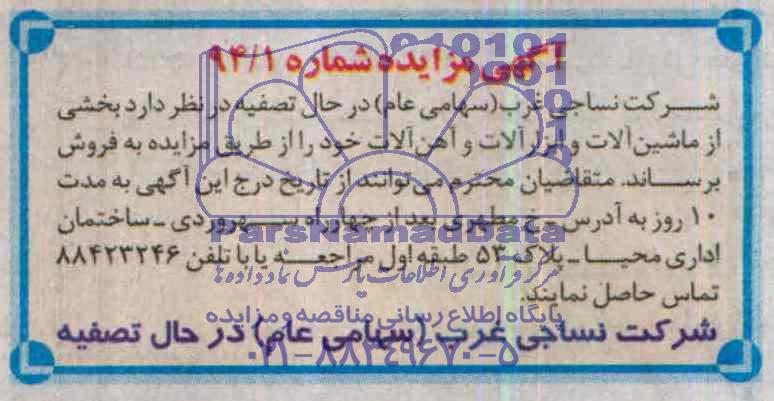 آگهی مزایده شماره ۹۴/۱
شرکت نساجی غرب (سهامی عام) در حال تصفیه در نظر دارد بخشی
از ماشین‌آلات و ابزارآلات و آهن‌آلات خود را از طریق مزایده به فروش
برساند. متقاضیان محترم می‌توانند از تاریخ درج این آگهی به مدت
۱۰ روز به آدرس ـ خ مطهری بعد از چهارراه سهروردی ـ ساختمان
ParsNamadData
اداری محیا ـ پلاک ۵۳ طبقه اول مراجعه یا با تلفن ۸۸۴۲۳۲۴۶
مرکز فرآوری اطلاعات پارس نماد داده‌ها
تماس حاصل نمایند.
پایگاه اطلاع رسانی مناقصه و مزایده
شرکت نساجی غرب (سهامی عام) در حال تصفیه
۰۲۱-۸۸۳۴۹۶۷۰-۵